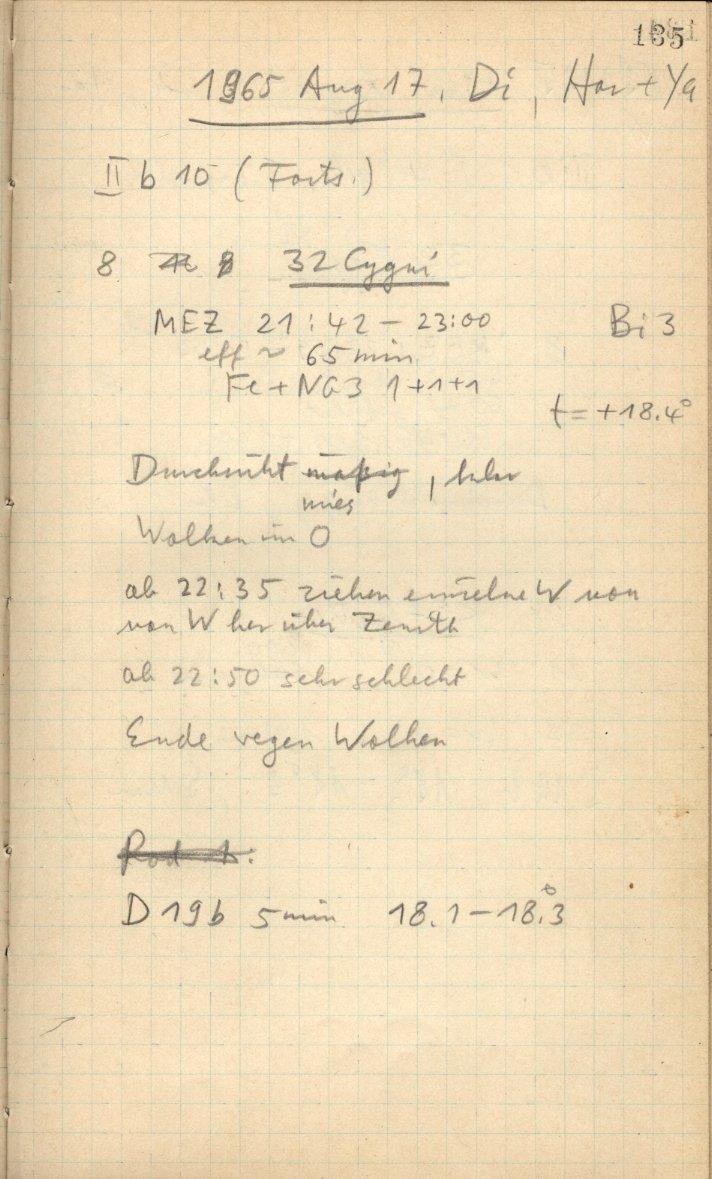 135
1965 Aug 17, Di, Har + Ya
II b 10 (Forts.)
8 32 Cygni
MEZ 21:42 – 23:00 Bi 3
eff ~ 65 min
Fe + NG3 1+1+1
t = +18.4°
Durchsicht mäßig,
mies
Wolken im O
ab 22:35 ziehen einzelne W von
von W her über Zenith
ab 22:50 sehr schlecht
Ende wegen Wolken
D 19b 5 min 18.1 – 18.3°